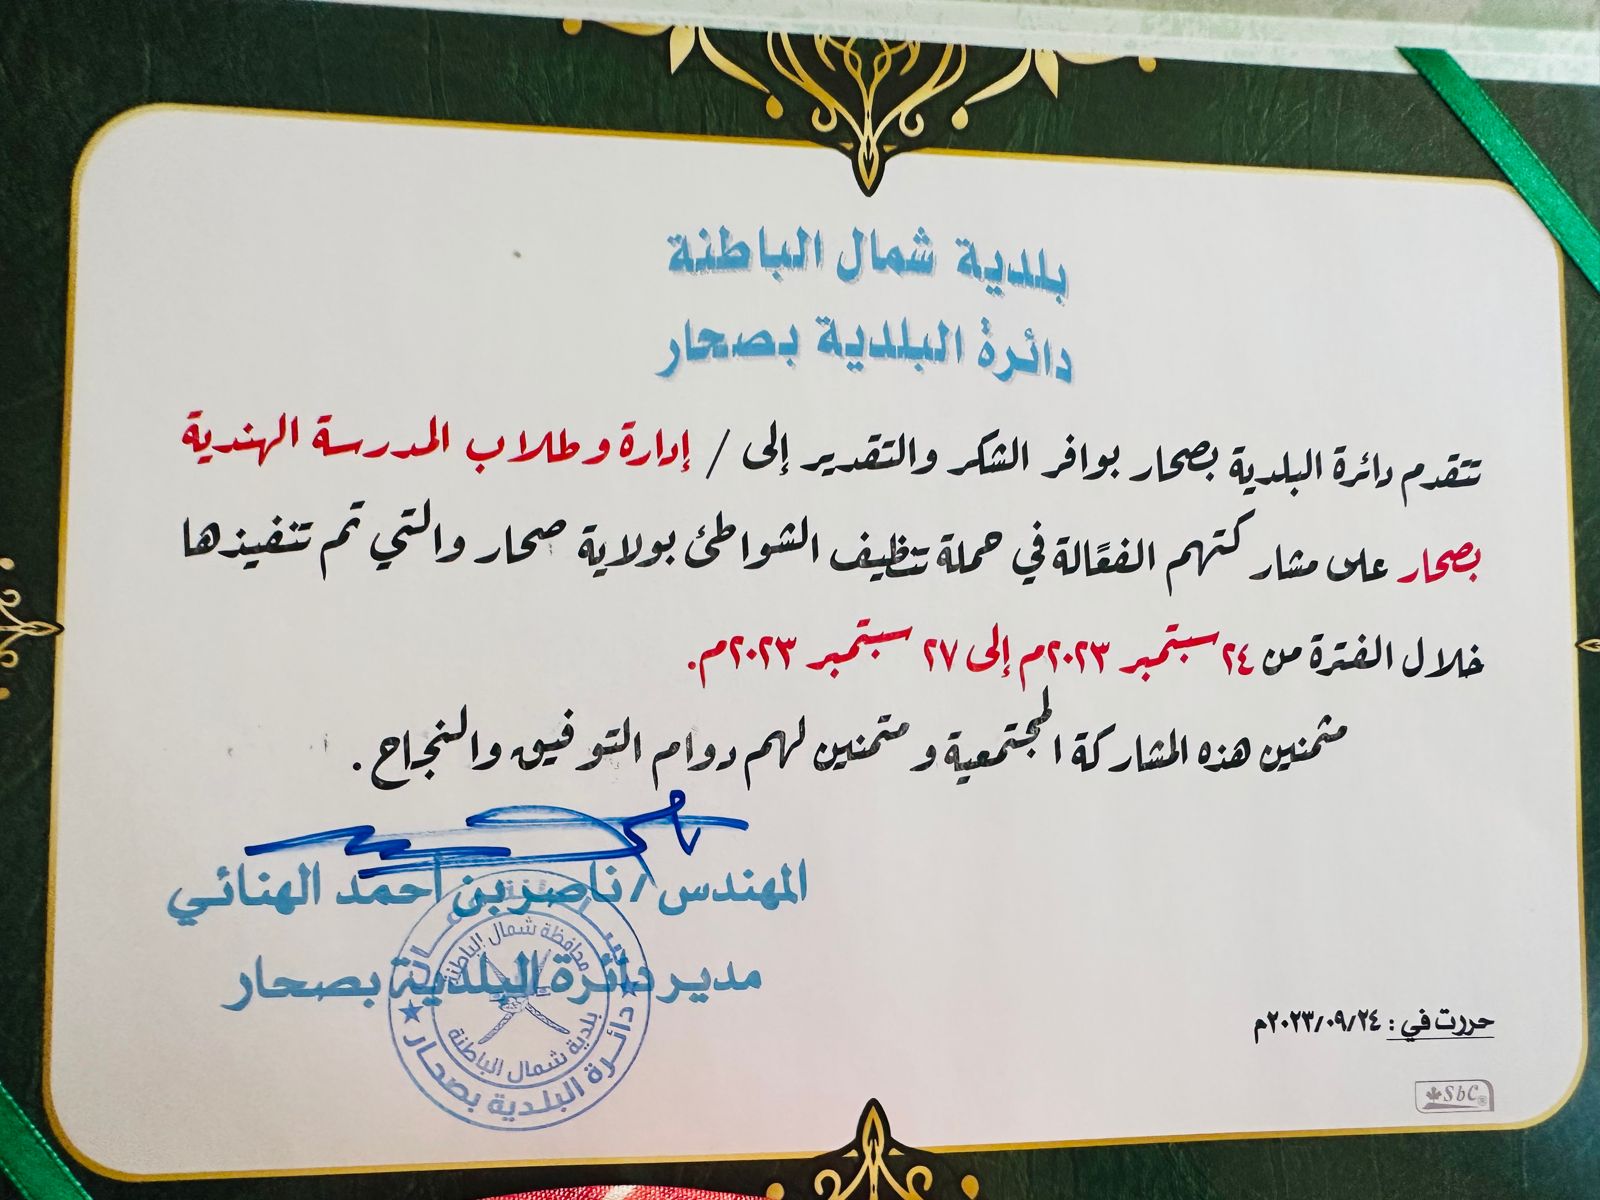 بلدية شمال الباطنة
دائرة البلدية بصحار
تتقدم دائرة البلدية بصحار بوافر الشكر والتقدير إلى / إدارة و طلاب المدرسة الهندية
بصحار على مشاركتهم الفعّالة في حملة تنظيف الشواطئ بولاية صحار والتي تم تنفيذها
خلال الفترة من ٢٤ سبتمبر ٢٠٢٣م إلى ٢٧ سبتمبر ٢٠٢٣م.
مثمنين هذه المشاركة المجتمعية و متمنين لهم دوام التوفيق والنجاح.
المهندس / ناصر بن أحمد الهنائي
مدير دائرة البلدية بصحار
محافظة شمال الباطنة
بلدية شمال الباطنة
دائرة البلدية بصحار
حررت في : ٢٠٢٣/٠٩/٢٤م
SbC